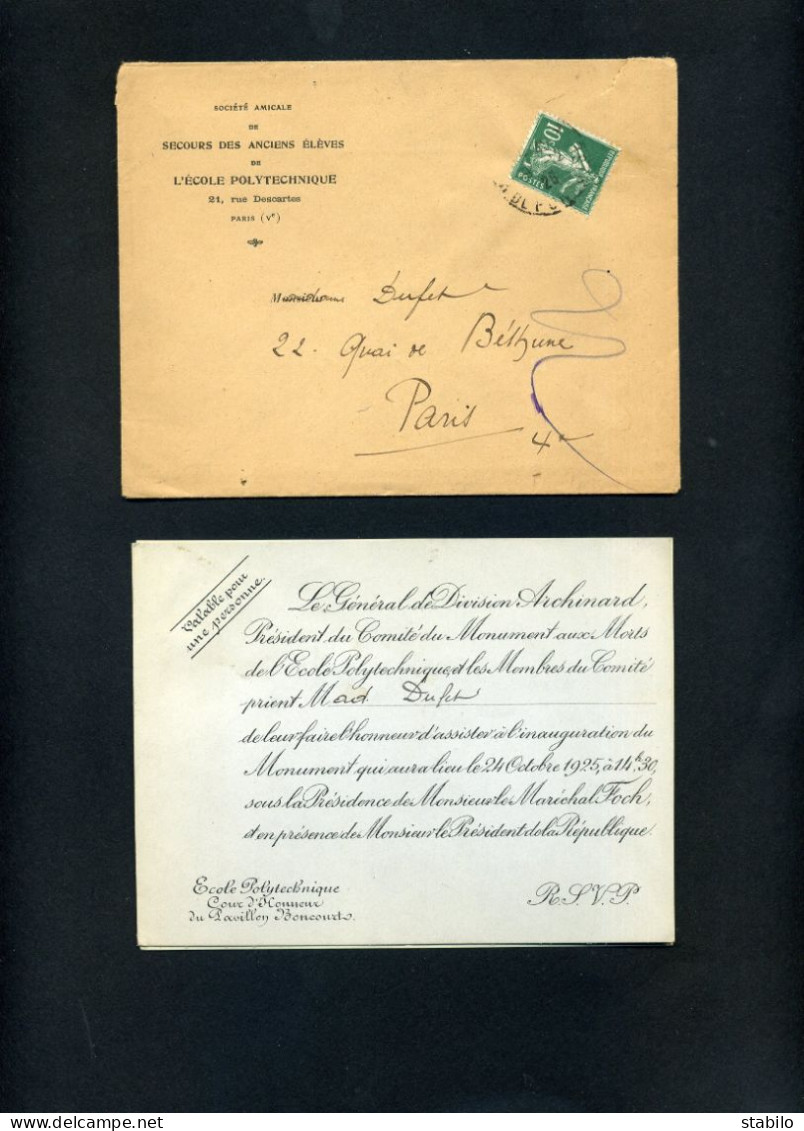 SOCIÉTÉ AMICALE
DE
SECOURS DES ANCIENS ÉLÈVES
DE
L'ÉCOLE POLYTECHNIQUE
21, rue Descartes
PARIS (Ve)
10
POSTES
Dufet
22. Quai de Béthune
Paris
4e
Valable pour
une personne.
Le Général de Division Archinard,
Président du Comité du Monument aux Morts
de l'Ecole Polytechnique, et les Membres du Comité
prient Mad Dufet
de leur faire l'honneur d'assister à l'inauguration du
Monument qui aura lieu le 24 Octobre 1925, à 14h.30,
sous la Présidence de Monsieur le Maréchal Foch,
et en présence de Monsieur le Président de la République.
Ecole Polytechnique
Cour d'Honneur
du Pavillon Boncourt.
R.S.V.P.
stabilo
www.delcampe.net